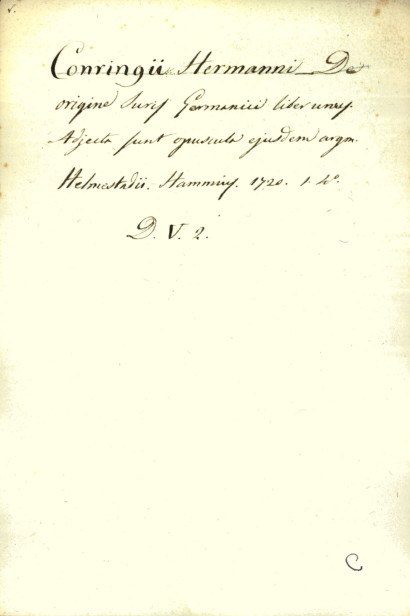 Conringii Hermanni De
origine Juris Germanici liber unus.
Adjecta sunt opuscula ejusdem argm.
Helmestadii. Hammius. 1720. 1. 4°.
D. V. 2.
C